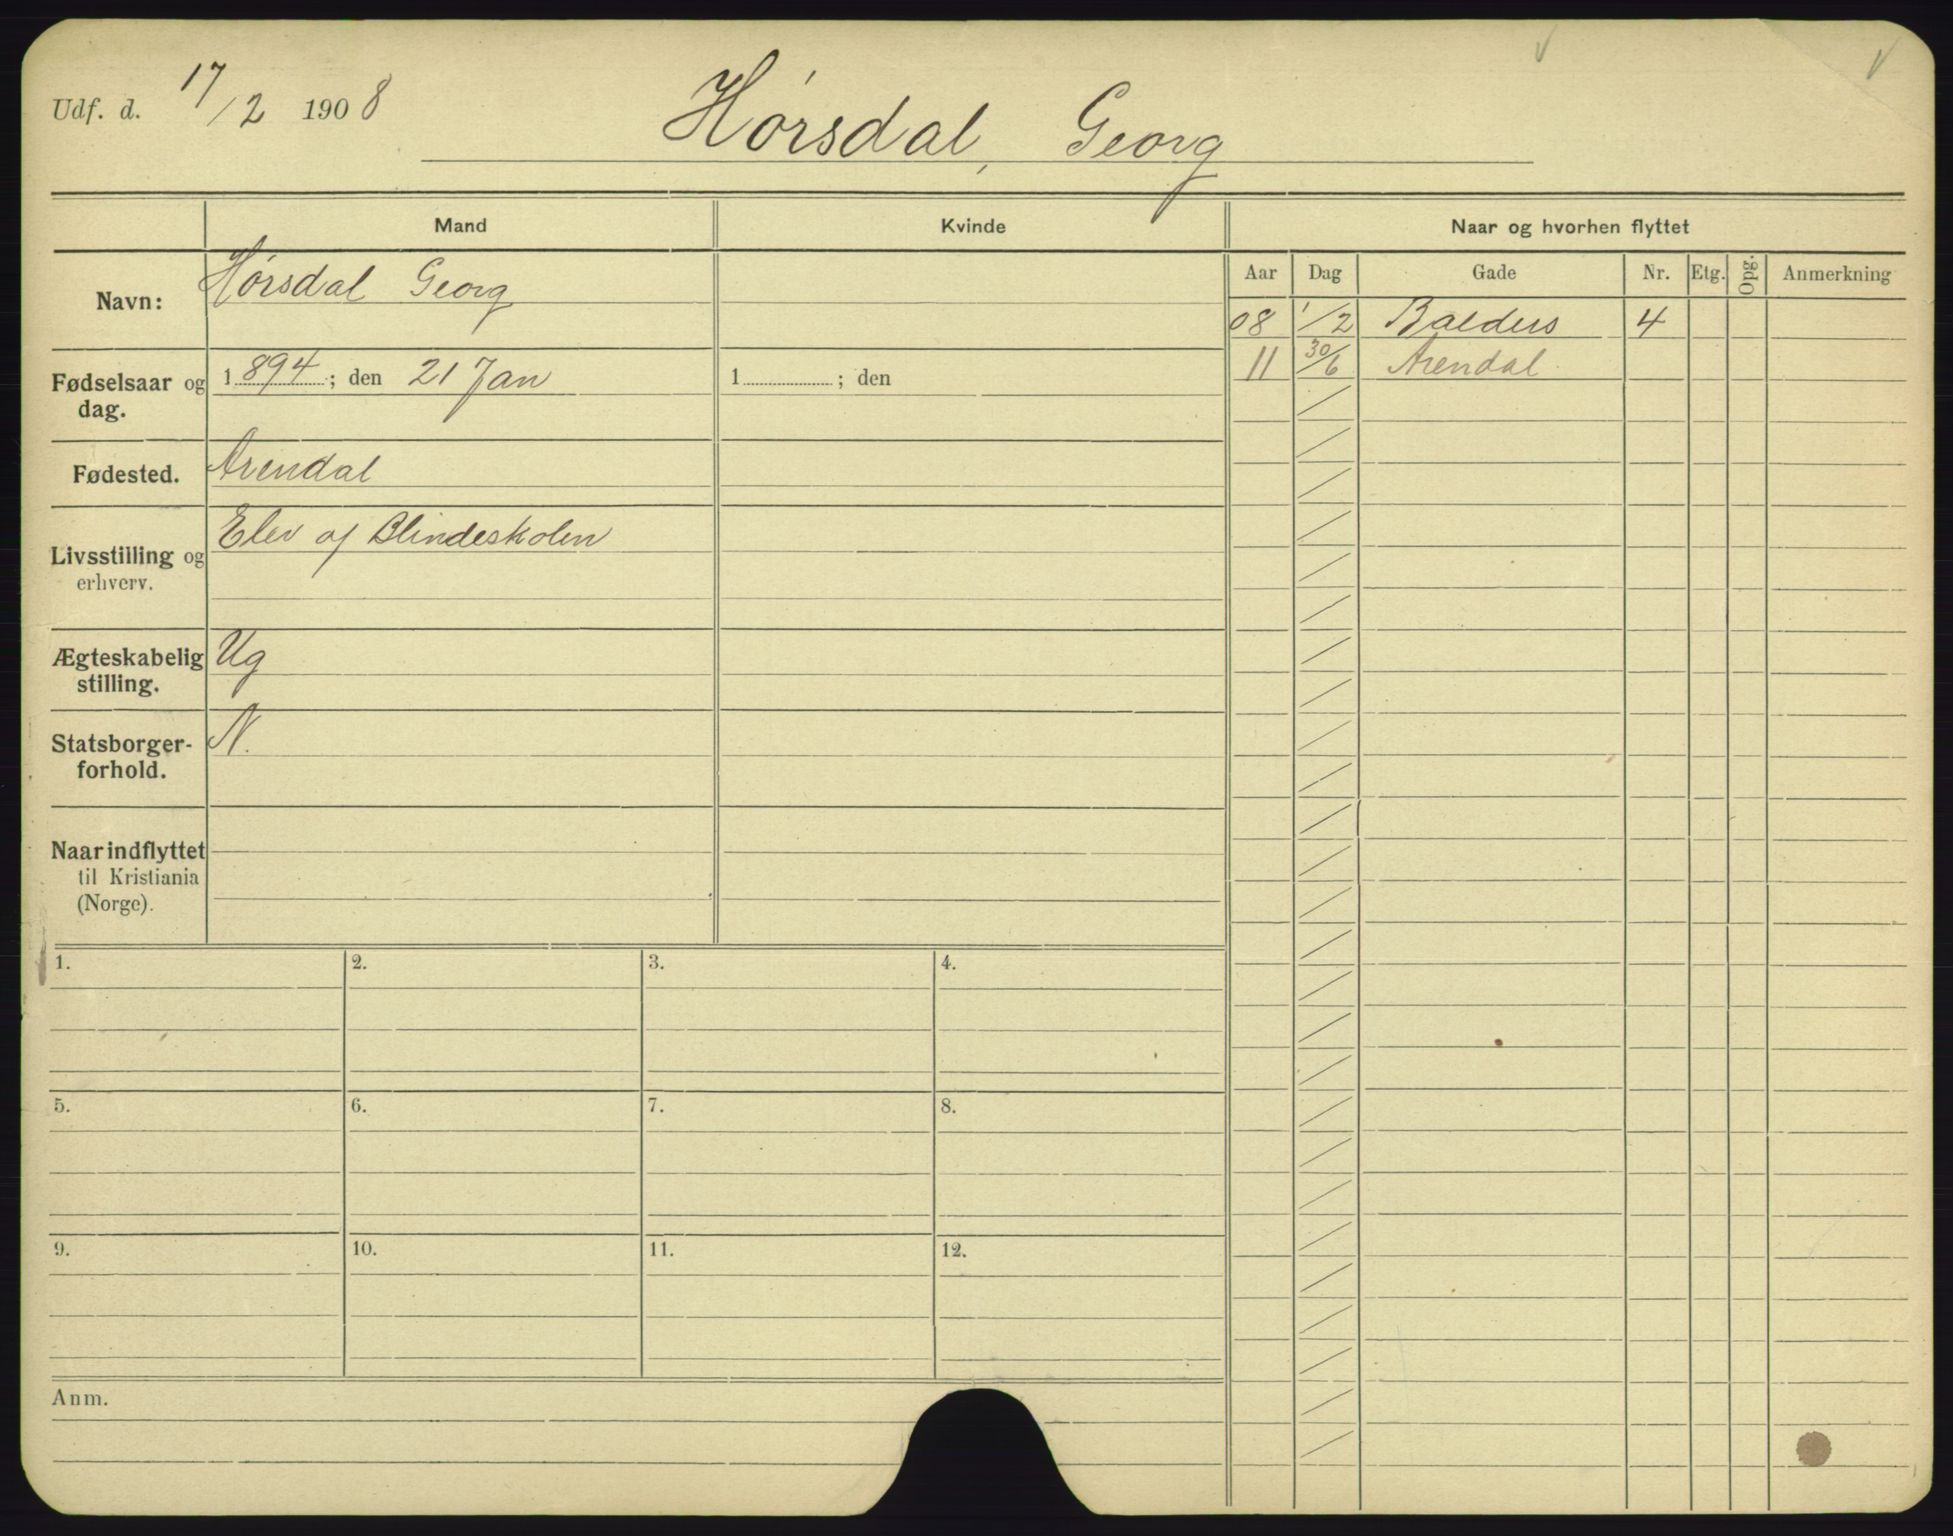 Udf. d. 17/2 1908
Hørsdal, Georg
Mand
Kvinde
Naar og hvorhen flyttet
Aar Dag Gade Nr. Etg. Opg. Anmerkning
Navn: Hørsdal Georg
08 1/2 Balders 4
11 30/6 Arendal
Fødselsaar og dag.
1894; den 21 Jan
1 ; den
Fødested. Arendal
Livsstilling og
erhverv.
Elev af Blindeskolen
Ægteskabelig
stilling.
Ug
Statsborger-
forhold.
N.
Naar indflyttet
til Kristiania
(Norge).
1. 2. 3. 4.
5. 6. 7. 8.
9. 10. 11. 12.
Anm.